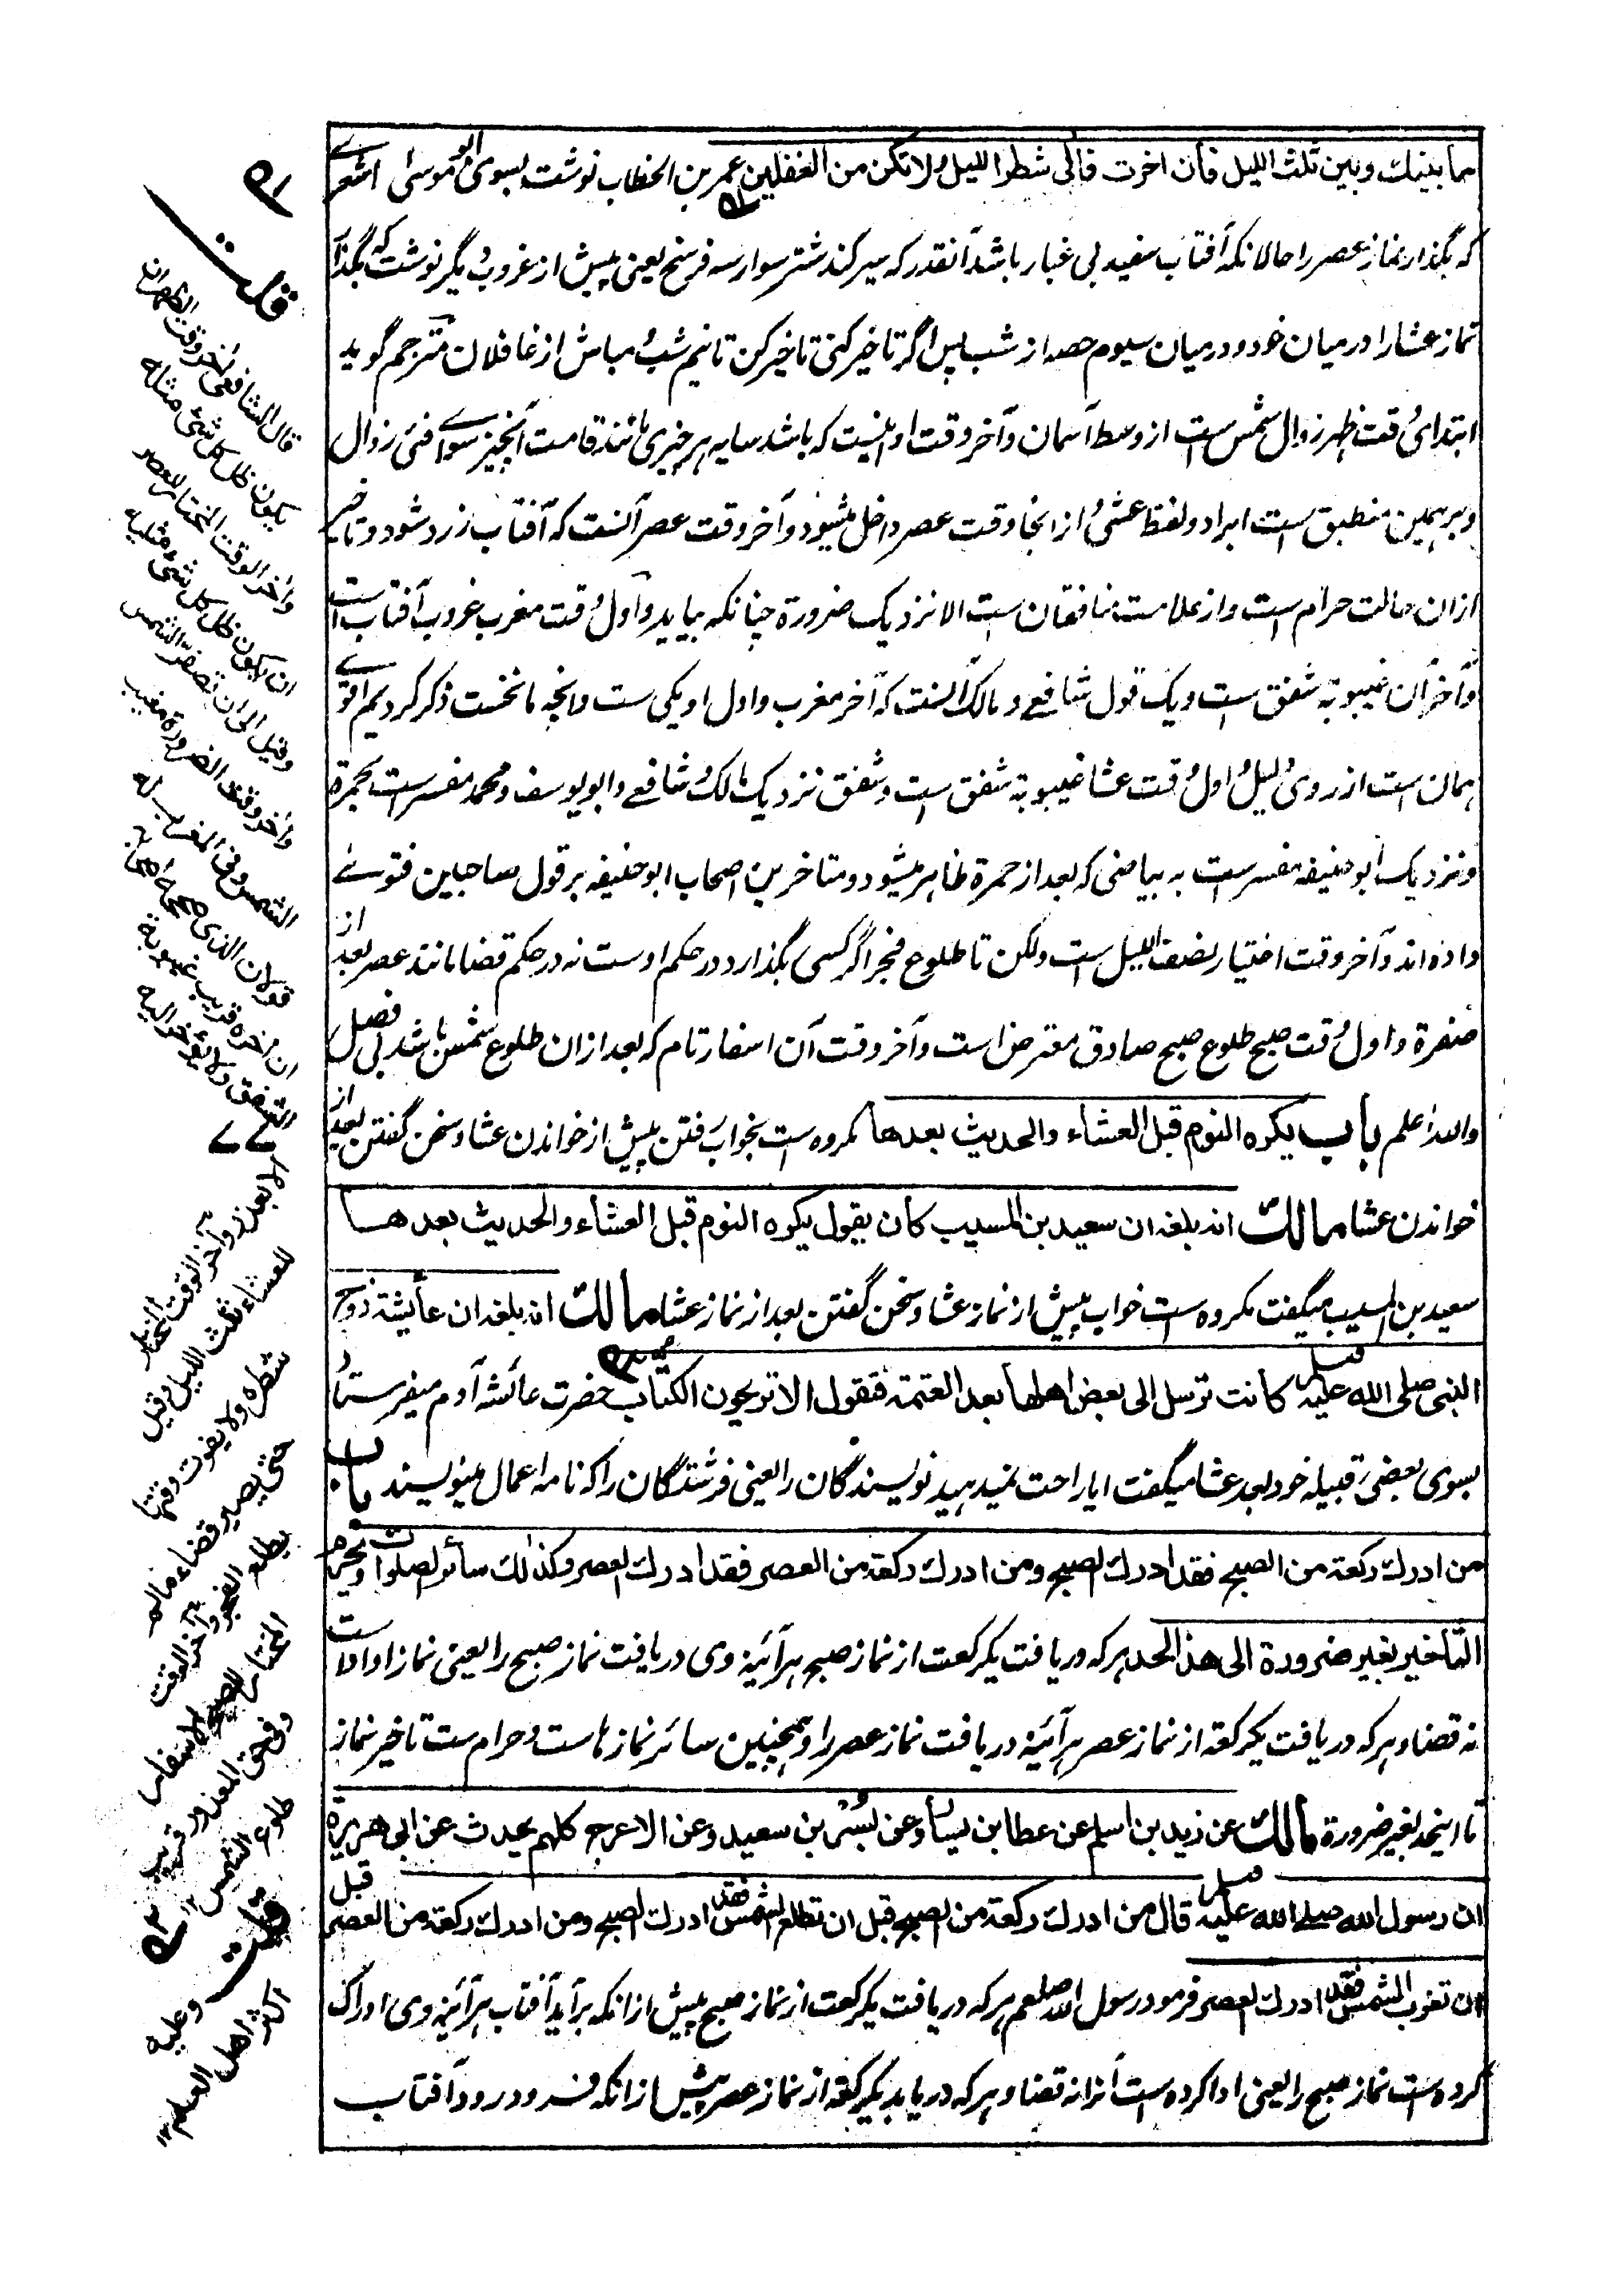 ما بينك وبين ثلث الليل فان اخرت فالى شطر الليل ولا تكن من الغفلين عمر بن الخطاب نوشت بسوى ابو موسى اشعرے
که بگذار نماز عصر را حالانکه آفتاب سفید بی غبار باشد آنقدر که سیر کند شتر سوار سه فرسخ یعنی پیش از غروب و دیگر نوشت که بگذار
نماز عشا را درمیان خود و درمیان سیوم حصه از شب پس اگر تاخیر کنی تاخیر کن تا نیم شب و مباش از غافلان مترجم گوید
ابتدای وقت ظهر زوال شمس است از وسط آسمان و آخر وقت او اینست که باشد سایه هر چیزی مانند قامت آنچیز سواے فئی زوال
و بر همین منطبق است ابراد و لفظ عشی و از اینجا وقت عصر داخل میشود و آخر وقت عصر آنست که آفتاب زرد شود و تاخیر
ازان حالت حرام است و از علامت منافقان است الا نزدیک ضرورة چنانکه بیاید و اول وقت مغرب غروب آفتاب است
و آخر آن غیبوبة شفق است و یک قول شافعے و مالک آنست که آخر مغرب و اول او یکی ست و آنچه ما نخست ذکر کردیم اقوے
همان است از روی دلیل و اول وقت عشا غیبوبة شفق است و شفق نزدیک مالک و شافعے و ابو یوسف و محمد مفسر است بحمرة
و نزدیک ابو حنیفه مفسر است به بیاضی که بعد از حمرة ظاهر میشود و متاخرین اصحاب ابو حنیفه بر قول صاحبین فتوے
داده اند و آخر وقت اختیار نصف اللیل است ولکن تا طلوع فجر اگر کسی بگذارد در حکم اوست نه در حکم قضا مانند عصر بعد از
صفرة و اول وقت صبح طلوع صبح صادق معترض است و آخر وقت آن اسفار تام که بعد ازان طلوع شمس باشد بی فصل
والله اعلم باب يكره النوم قبل العشاء والحديث بعدها مکروه ست بخواب رفتن پیش از خواندن عشا و سخن گفتن بعد از
خواندن عشا مالك انه بلغه ان سعيد بن المسيب كان يقول يكره النوم قبل العشاء والحديث بعدها
سعید بن المسیب میگفت مکروه ست خواب پیش از نماز عشا و سخن گفتن بعد از نماز عشا مالك انه بلغه ان عايشة زوج
النبى صلى الله عليه وسلم كانت ترسل الى بعض اهلها بعد العتمة فتقول الا تريحون الكتاب حضرت عائشه آدم میفرستاد
بسوی بعضی قبیله خود بعد عشا میگفت ایا راحت نمیدهید نویسندگان را یعنی فرشتگان را که نامه اعمال مینویسند باب
من ادرك ركعة من الصبح فقد ادرك الصبح ومن ادرك ركعة من العصر فقد ادرك العصر وكذلك سائر الصلوات ويحرم
التاخير بغير ضرورة الى هذا الحد هر که دریافت یک رکعت از نماز صبح هر آئینه وی دریافت نماز صبح را یعنی نماز او ادا است
نه قضا و هر که دریافت یک رکعة از نماز عصر هر آئینه دریافت نماز عصر را و همچنین سائر نماز هاست و حرام ست تاخیر نماز
تا اینحد بغیر ضرورة مالك عن زيد بن اسلم عن عطا بن يسار وعن بسر بن سعيد وعن الاعرج كلهم يحدث عن ابى هريرة
ان رسول الله صلے الله عليه وسلم قال من ادرك ركعة من الصبح قبل ان تطلع الشمس فقد ادرك الصبح ومن ادرك ركعة من العصر قبل
ان تغرب الشمس فقد ادرك العصر فرمود رسول الله صلعم هر که دریافت یک رکعت از نماز صبح پیش از انکه بر آید آفتاب هر آئینه وی ادراک
کرده ست نماز صبح را یعنی ادا کرده ست آنرا نه قضا و هر که دریابد یک رکعة از نماز عصر پیش از انکه فرو درود آفتاب
قلت
قال الشافعى آخر وقت الظهر ان
يكون ظل كل شئ مثله
وآخر الوقت المختار للعصر
ان يكون ظل كل شئ مثليه
وقيل الى ان تصفر الشمس
وآخر وقت الضرورة مغيب
الشمس وفى المغرب له
قولان الذى صححه اصحابه
ان آخره قريب غيبوبة
الشفق ولا يؤخر اليه
الا بعذر وآخر الوقت المختار
للعشاء ثلث الليل وقيل
شطره ولا يفوت وقتها
حتى يصير قضاء ما لم
يطلع الفجر وآخر الوقت
المختار للصبح الاسفار
وفى حق المعذور قريب
طلوع الشمس ١٢
قلت وعليه
اكثر اهل العلم ١٢